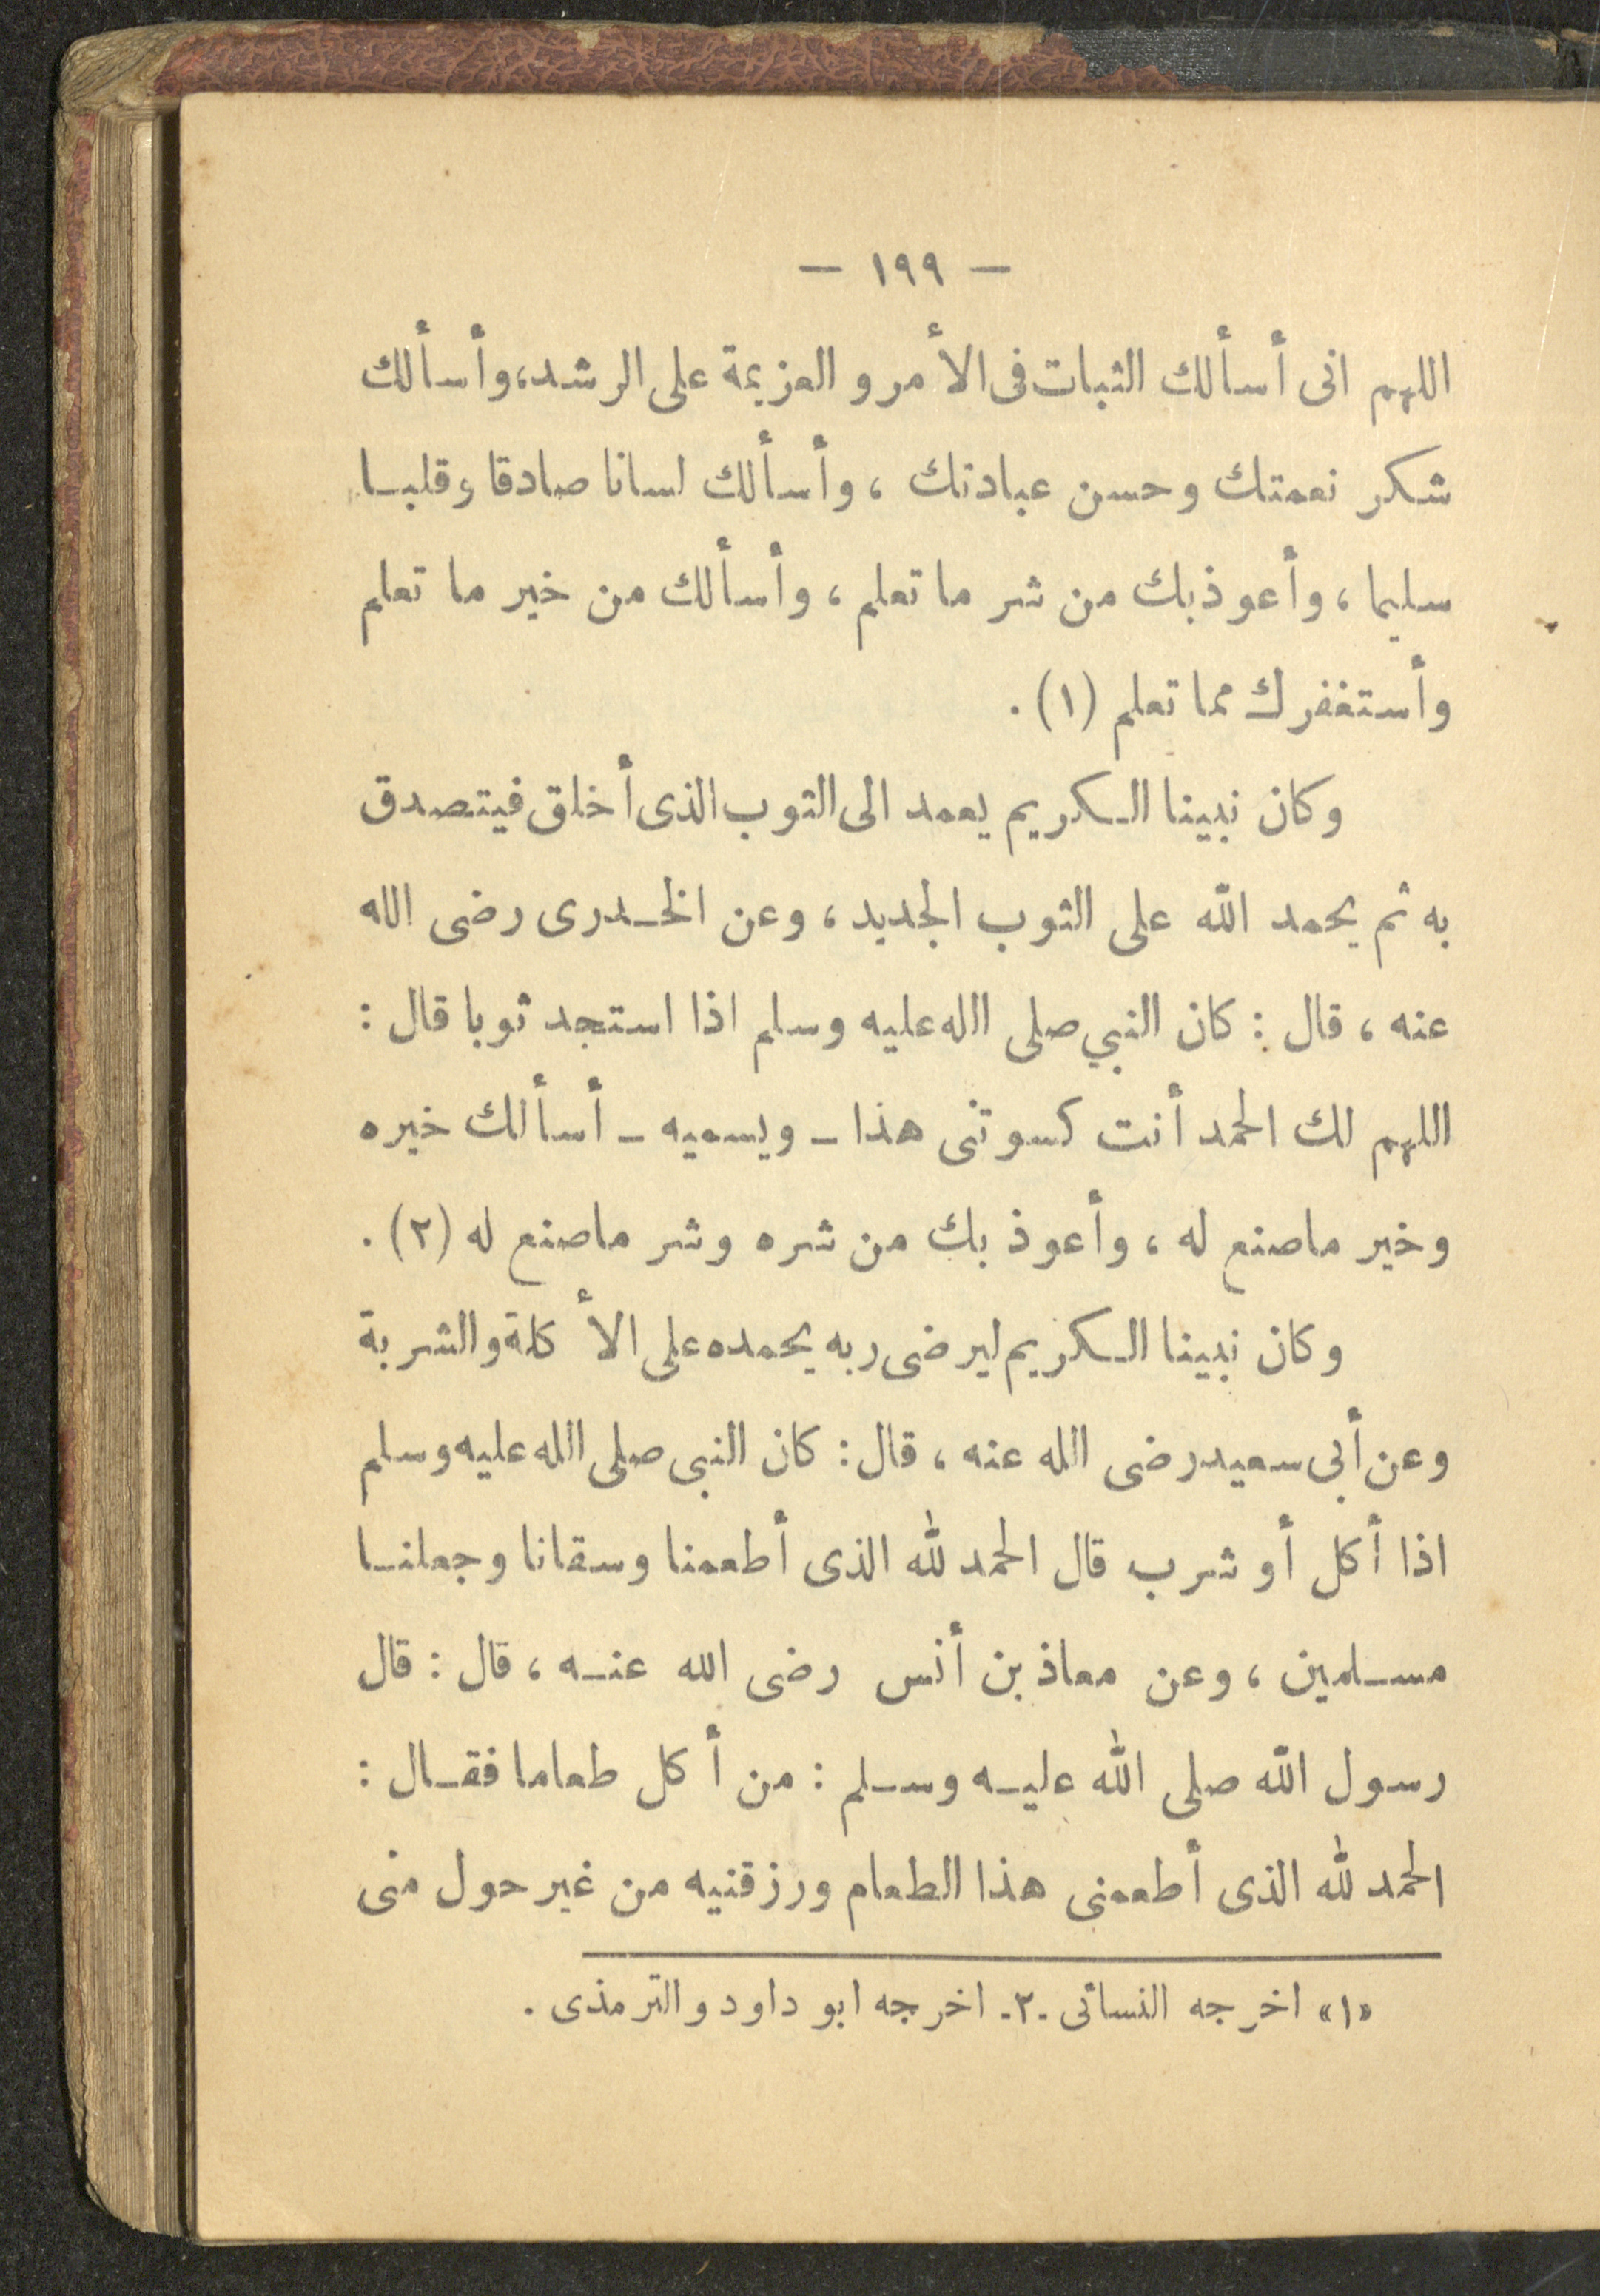 — ١٩٩ —
اللهم انى أسألك الثبات فى الأمر و العزيمة على الرشد، وأسألك
شكر نعمتك وحسن عبادتك ، وأسألك لسانا صادقا وقلبا
سليما ، وأعوذ بك من شر ما تعلم ، وأسألك من خير ما تعلم
وأستغفرك مما تعلم (١) .
وكان نبينا الكريم يعمد الى الثوب الذى أخلق فيتصدق
به ثم يحمد الله على الثوب الجديد ، وعن الخدرى رضى الله
عنه ، قال : كان النبي صلى الله عليه وسلم اذا استجد ثوبا قال :
اللهم لك الحمد أنت كسوتنى هذا ـ ويسميه ـ أسألك خيره
وخير ماصنع له ، وأعوذ بك من شره وشر ماصنع له (٢) .
وكان نبينا الكريم ليرضى ربه يحمده على الأكلة والشربة
وعن أبى سعيد رضى الله عنه ، قال : كان النبى صلى الله عليه وسلم
اذا أكل أو شرب قال الحمد لله الذى أطعمنا وسقانا وجعلنا
مسلمين ، وعن معاذ بن أنس رضى الله عنه ، قال : قال
رسول الله صلى الله عليه وسلم : من أكل طعاما فقال :
الحمد لله الذى أطعمنى هذا الطعام ورزقنيه من غير حول منى
«١» اخرجه النسائى -٢- اخرجه ابو داود والترمذى .